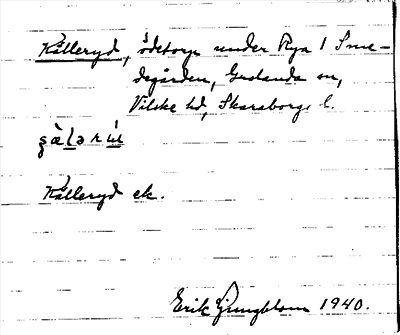 Källeryd, ödetorp under Rya 1 Sme-
degården, Grolanda sn,
Vilske hd, Skaraborgs l.
Källeryd ek.
Erik Ljungblom 1940.